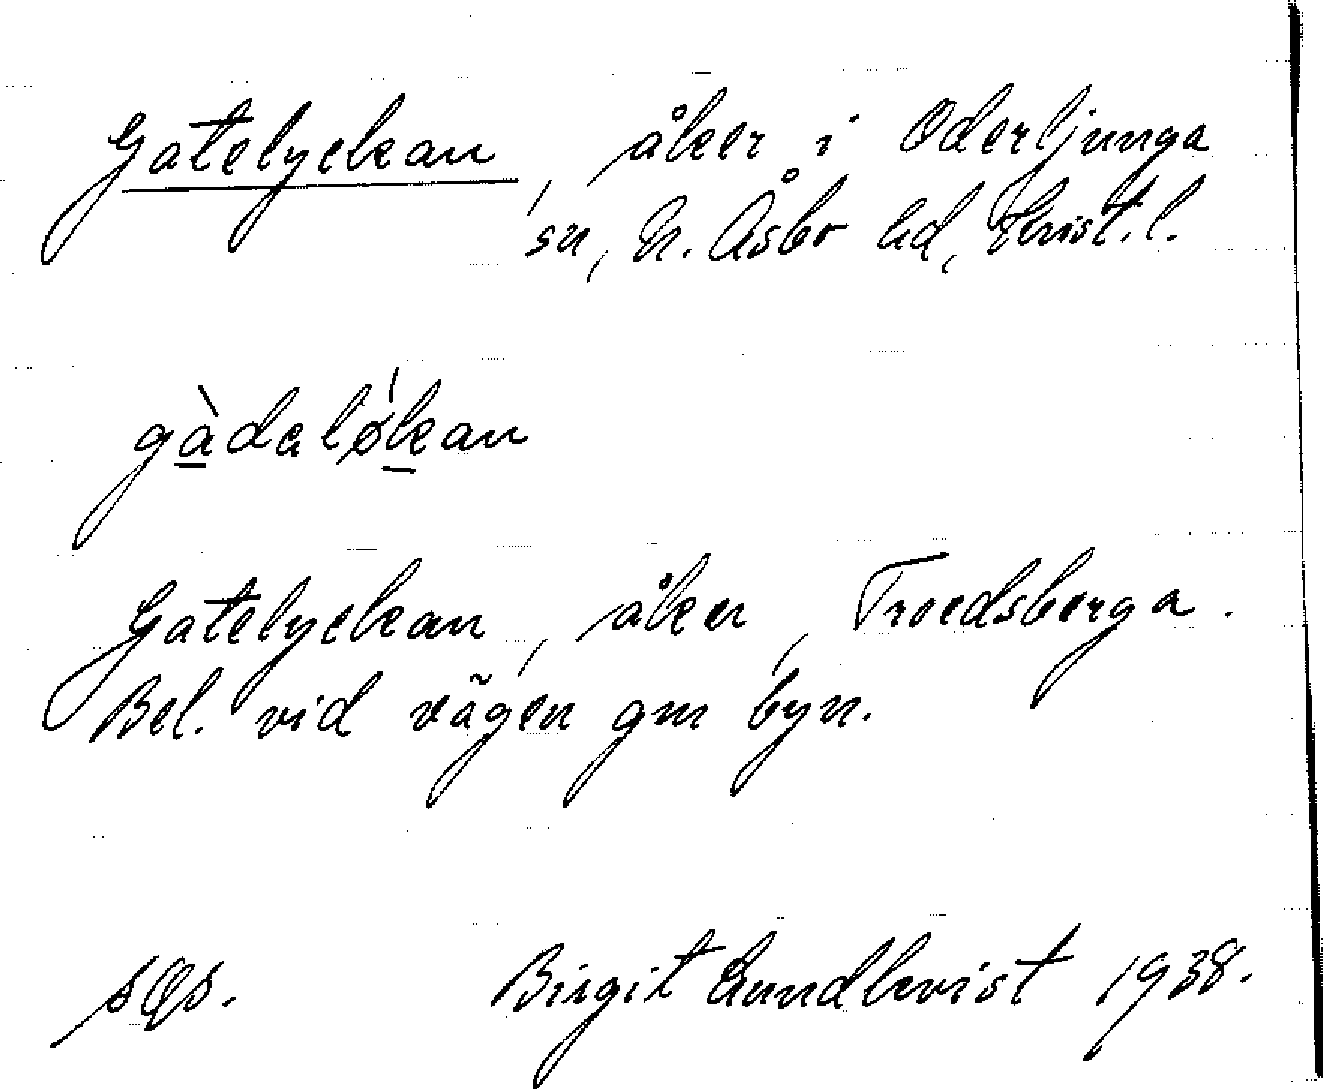 Gatelyckan, åker i Oderljunga
sn, N. Åsbo hd, Krist. l.
gàdaløkan
Gatelyckan, åker, Troedsberga.
Bel. vid vägen gm byn.
Birgit Lundkvist 1938.